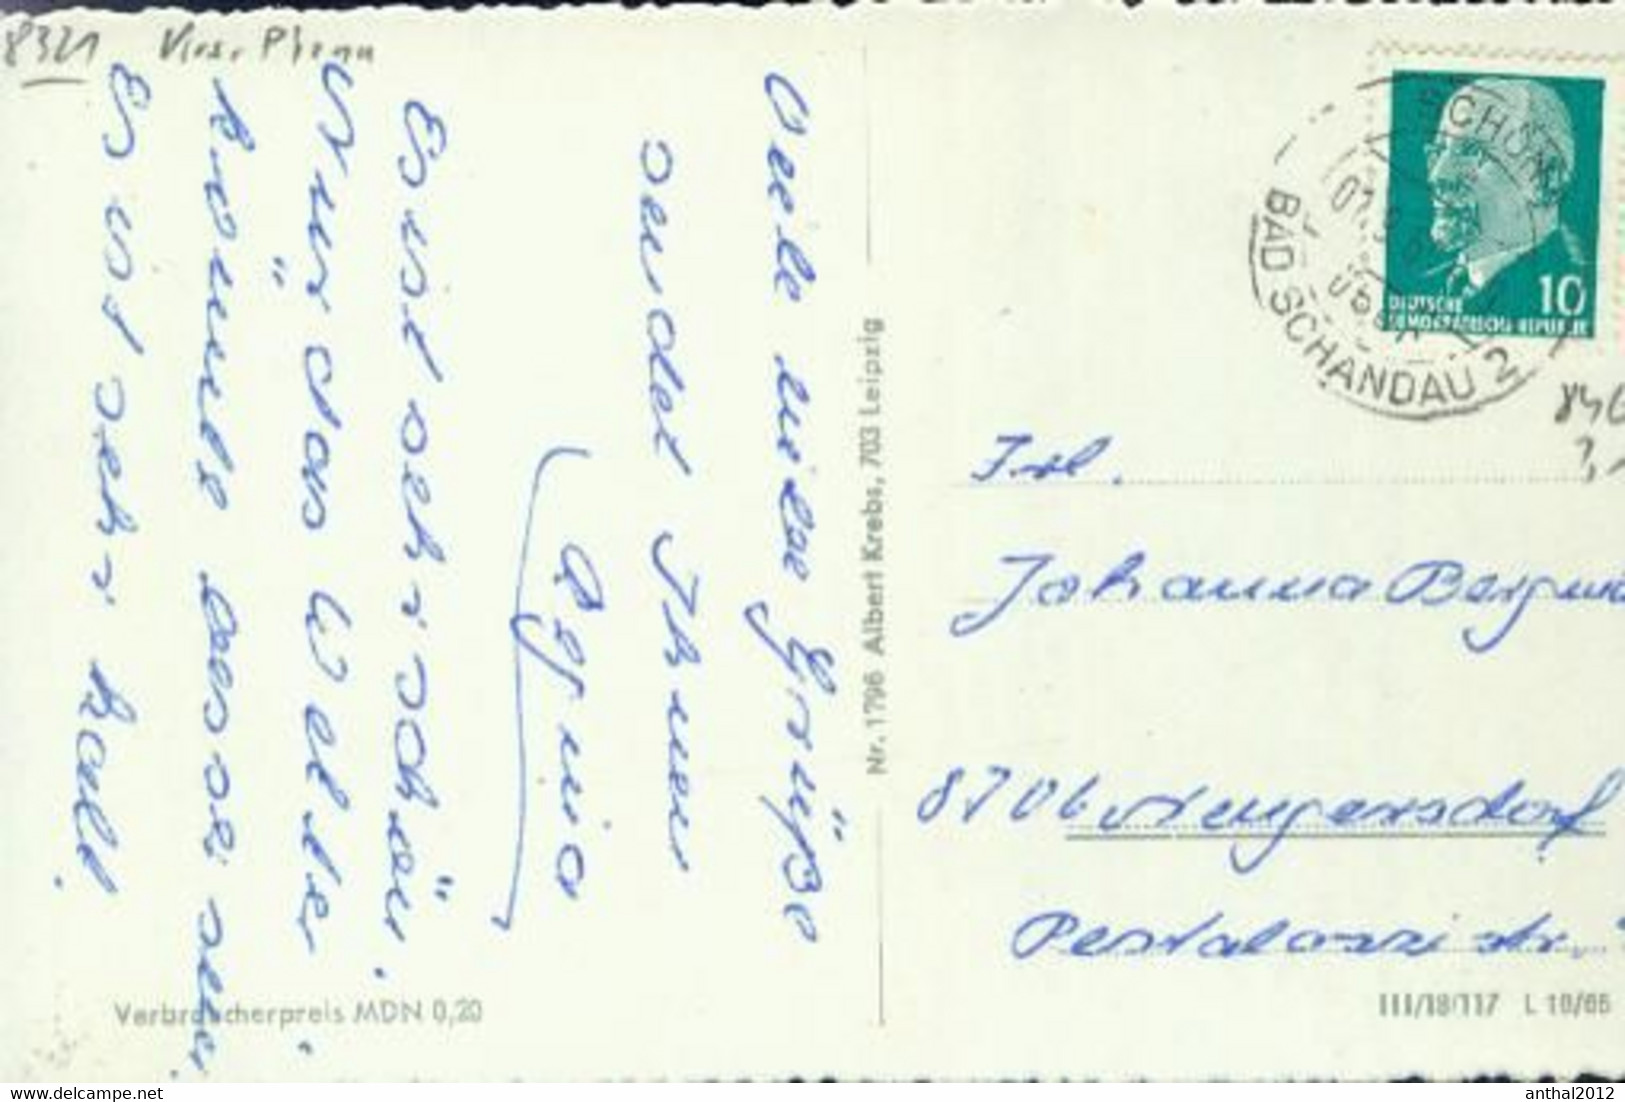 8321 Krs. Pirna
Viele liebe Grüße
sendet Ihnen
Regina
Es ist sehr schön.
Nur das Wetter
könnte besser sein.
Es ist sehr kalt.
Verbraucherpreis MDN 0,20
Nr. 1796 Albert Krebs, 703 Leipzig
SCHÖNA
BAD SCHANDAU 2
10
DEUTSCHE
DEMOKRATISCHE REPUBLIK
Frl.
Johanna
8706 Neugersdorf
Pestalozzistr.
III/18/117 L 10/65
www.delcampe.net
anthal2012